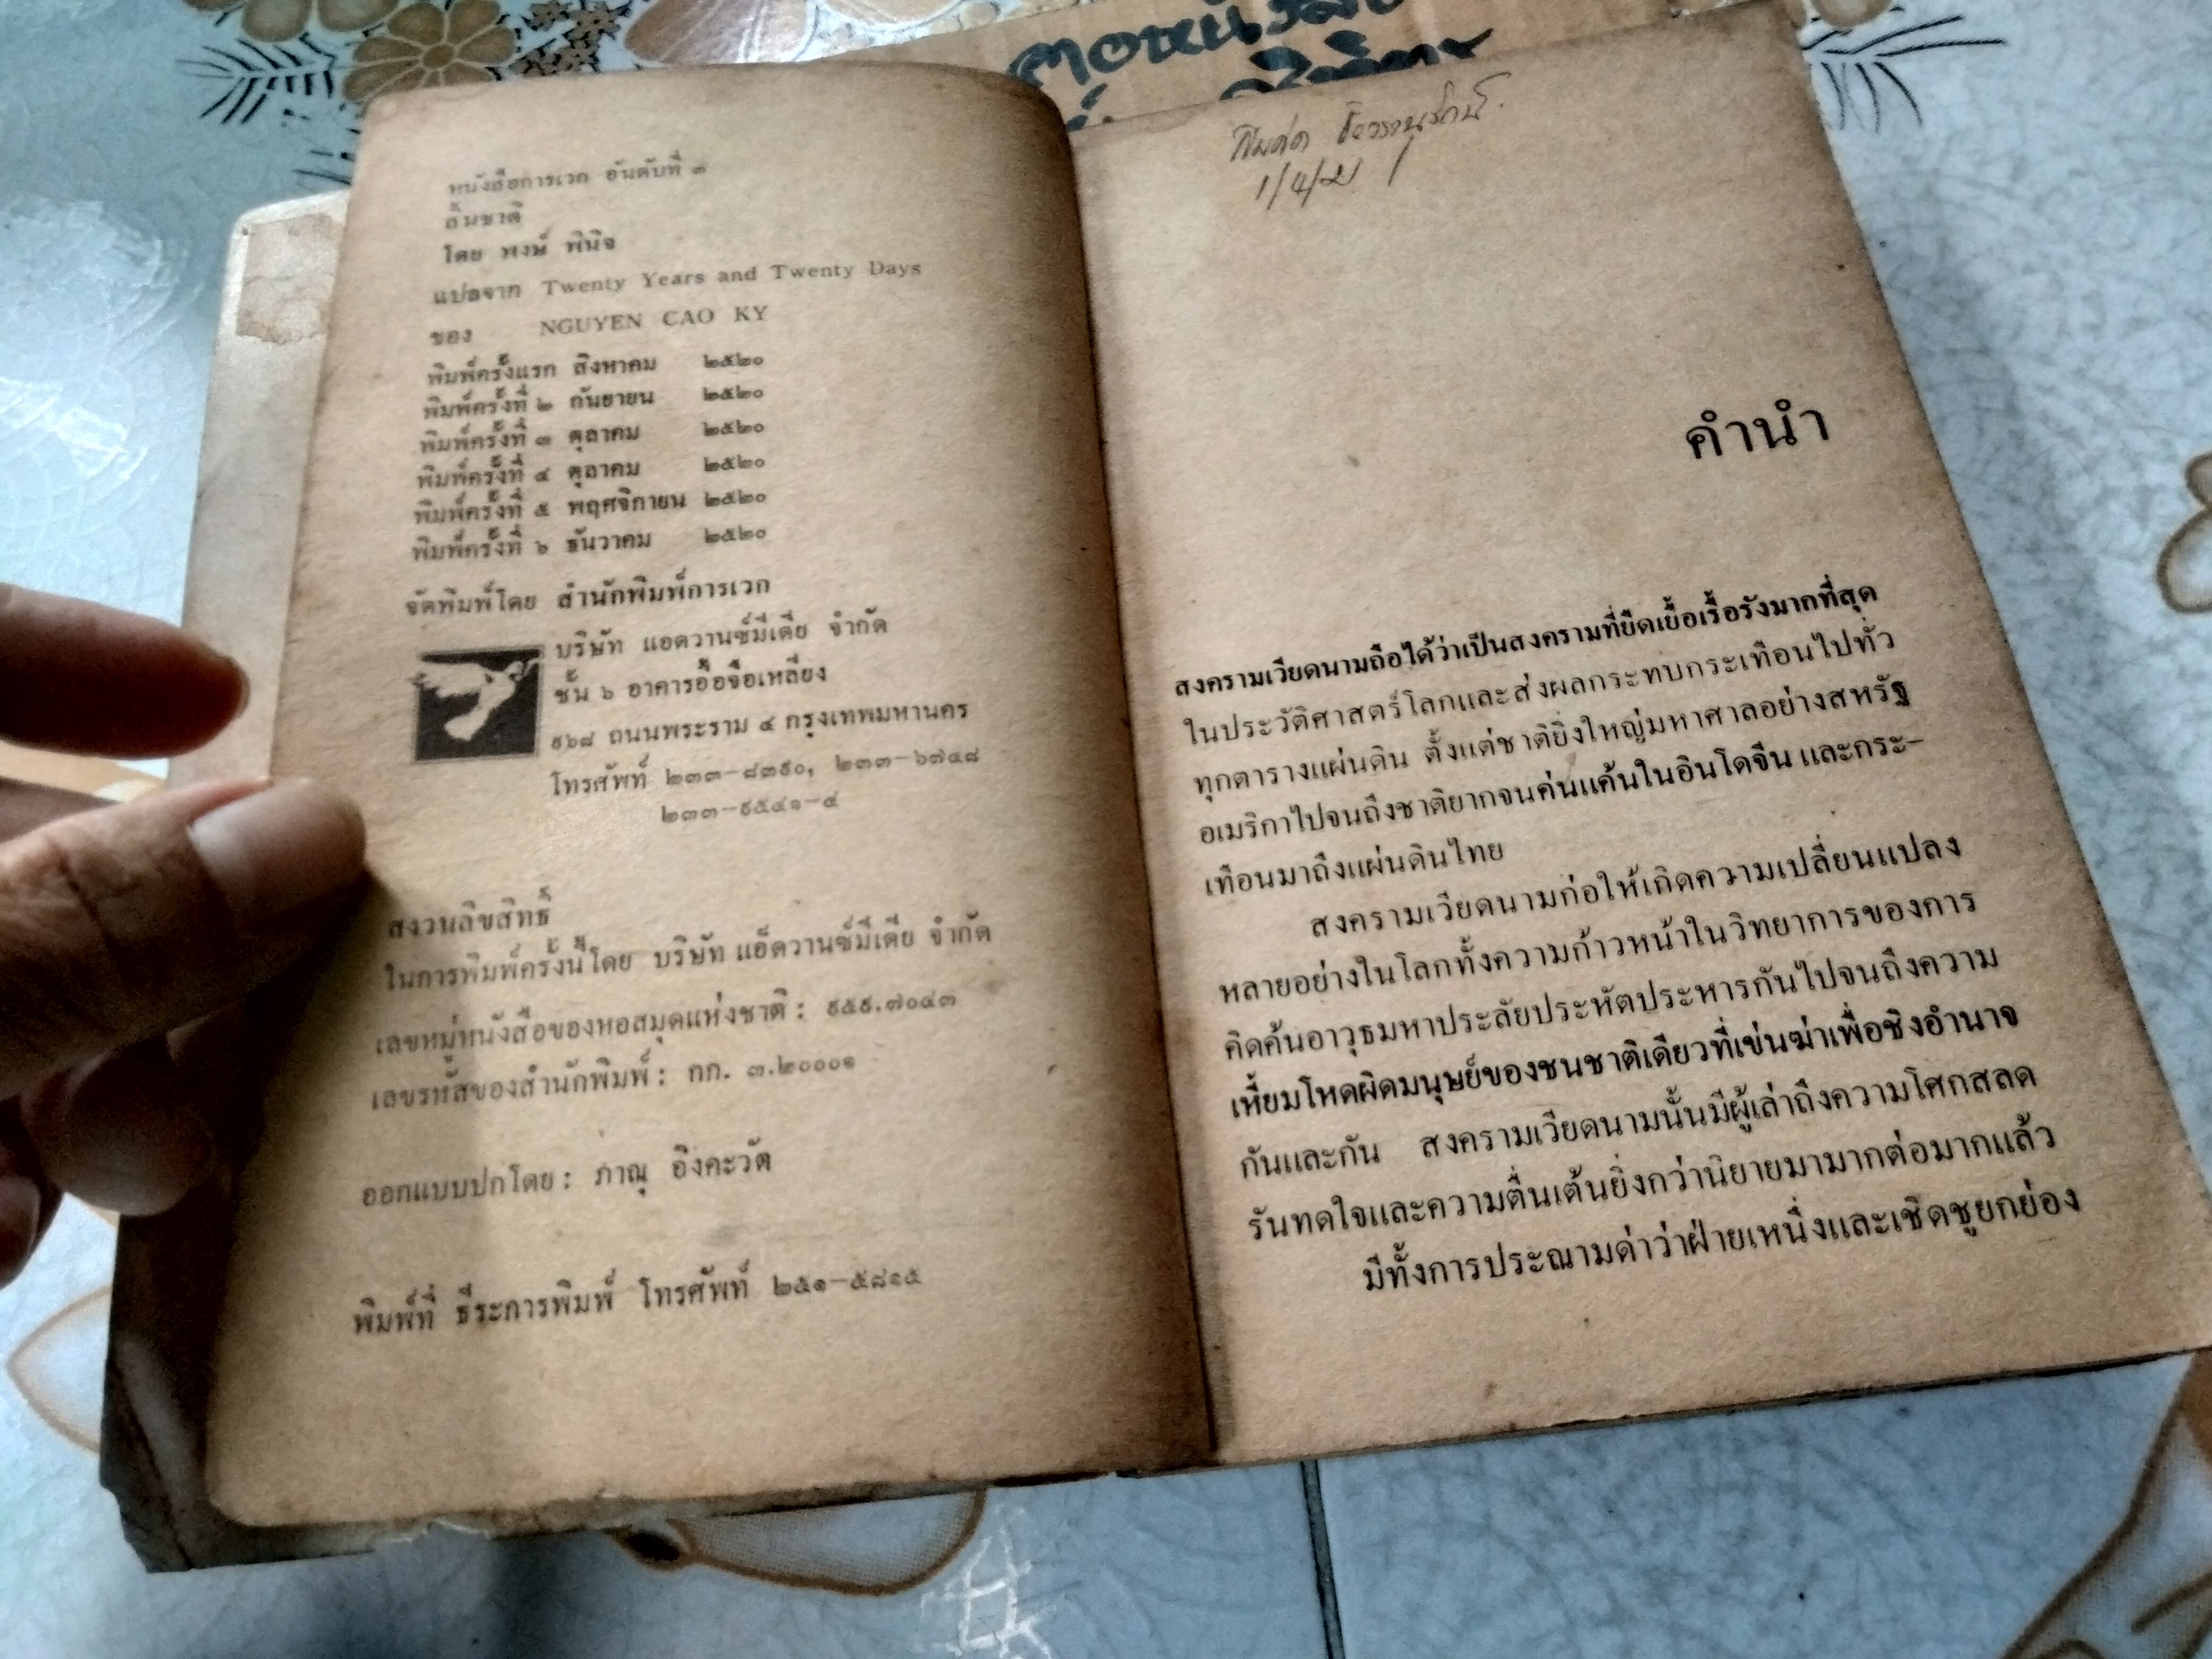 หนังสือการเวก อันดับที่ ๓
สิ้นชาติ
โดย พงษ์ พินิจ
แปลจาก Twenty Years and Twenty Days
ของ NGUYEN CAO KY
พิมพ์ครั้งแรก สิงหาคม ๒๕๒๐
พิมพ์ครั้งที่ ๒ กันยายน ๒๕๒๐
พิมพ์ครั้งที่ ๓ ตุลาคม ๒๕๒๐
พิมพ์ครั้งที่ ๔ ตุลาคม ๒๕๒๐
พิมพ์ครั้งที่ ๕ พฤศจิกายน ๒๕๒๐
พิมพ์ครั้งที่ ๖ ธันวาคม ๒๕๒๐
จัดพิมพ์โดย สำนักพิมพ์การเวก
บริษัท แอดวานซ์มีเดีย จำกัด
ชั้น ๖ อาคารอื้อจือเหลียง
๙๖๘ ถนนพระราม ๔ กรุงเทพมหานคร
โทรศัพท์ ๒๓๓-๘๓๙๐, ๒๓๓-๖๗๔๘
๒๓๓-๙๕๔๑-๔
สงวนลิขสิทธิ์
ในการพิมพ์ครั้งนี้โดย บริษัท แอ็ดวานซ์มีเดีย จำกัด
เลขหมู่หนังสือของหอสมุดแห่งชาติ : ๙๕๙.๗๐๔๓
เลขรหัสของสำนักพิมพ์ : กก. ๓.๒๐๐๐๑
ออกแบบปกโดย : ภาณุ อิงคะวัต
พิมพ์ที่ ธีระการพิมพ์ โทรศัพท์ ๒๕๑-๕๘๑๕
1/4/21
คำนำ
สงครามเวียดนามถือได้ว่าเป็นสงครามที่ยืดเยื้อเรื้อรังมากที่สุด
ในประวัติศาสตร์โลกและส่งผลกระทบกระเทือนไปทั่ว
ทุกตารางแผ่นดิน ตั้งแต่ชาติยิ่งใหญ่มหาศาลอย่างสหรัฐ
อเมริกาไปจนถึงชาติยากจนค่นแค้นในอินโดจีน และกระ-
เทือนมาถึงแผ่นดินไทย
สงครามเวียดนามก่อให้เกิดความเปลี่ยนแปลง
หลายอย่างในโลกทั้งความก้าวหน้าในวิทยาการของการ
คิดค้นอาวุธมหาประลัยประหัตประหารกันไปจนถึงความ
เหี้ยมโหดผิดมนุษย์ของชนชาติเดียวที่เข่นฆ่าเพื่อชิงอำนาจ
กันและกัน สงครามเวียดนามนั้นมีผู้เล่าถึงความโศกสลด
รันทดใจและความตื่นเต้นยิ่งกว่านิยายมามากต่อมากแล้ว
มีทั้งการประณามด่าว่าฝ่ายเหนึ่งและเชิดชูยกย่อง